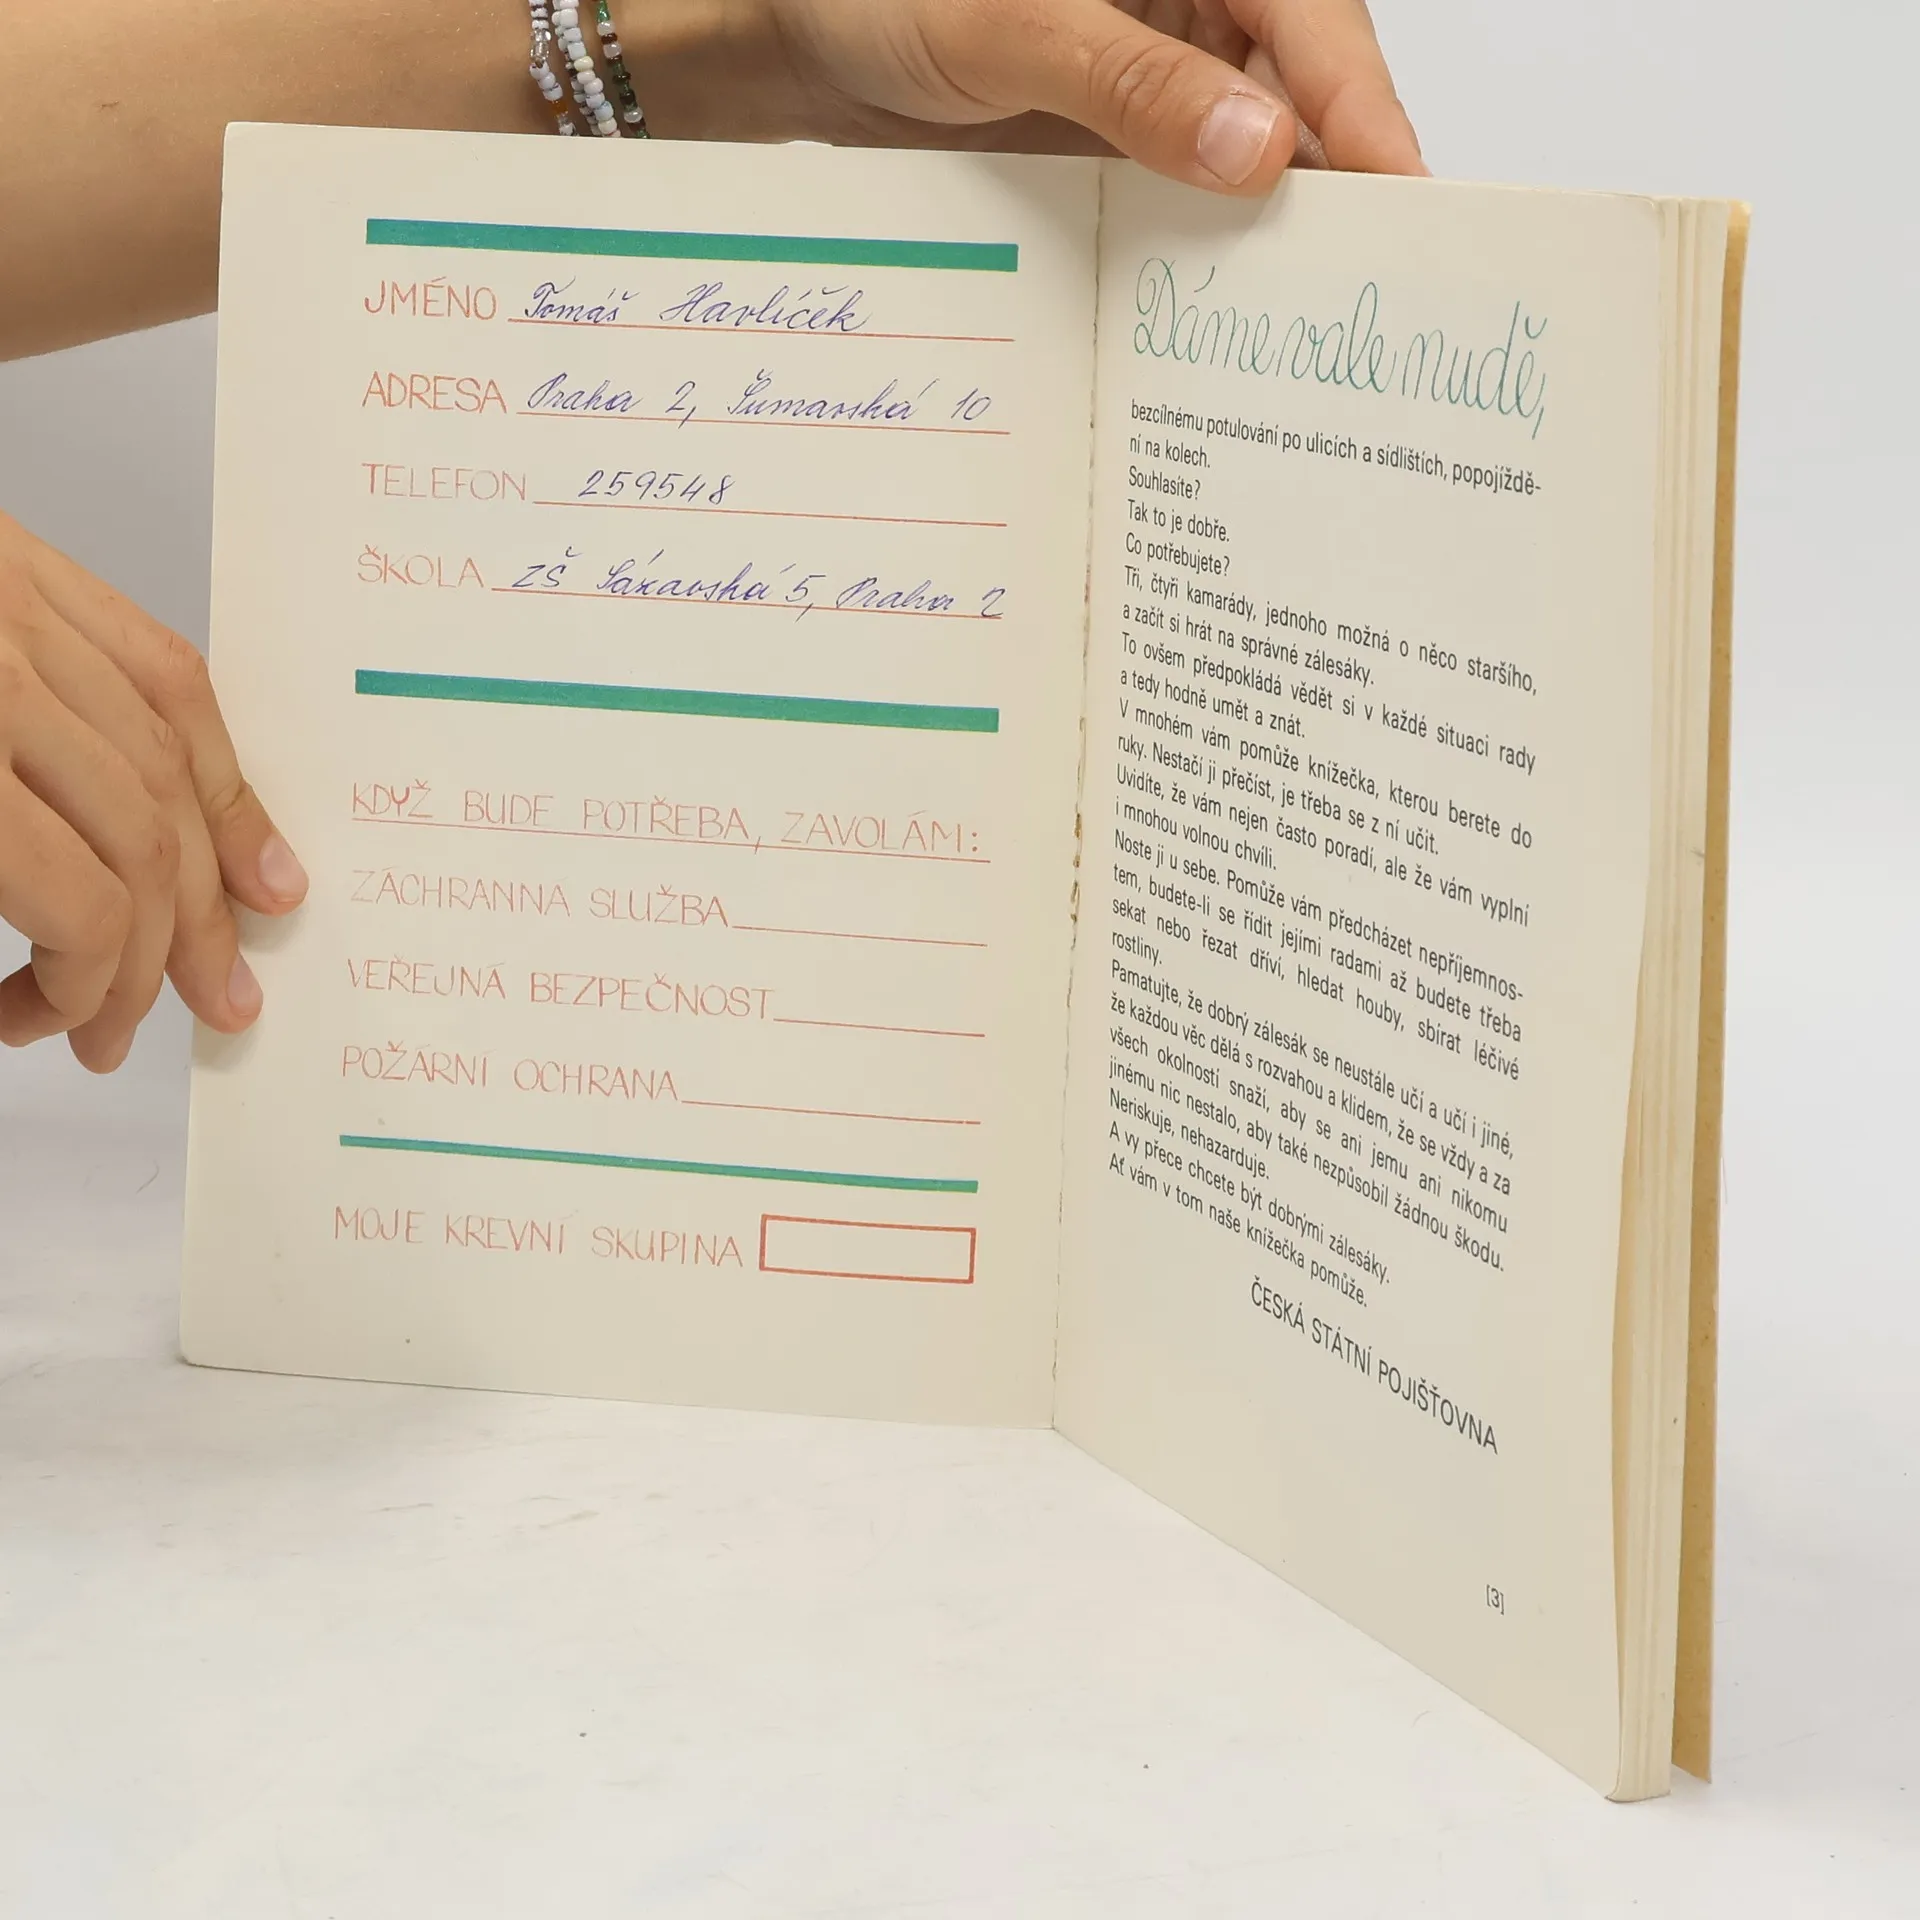 JMÉNO Tomáš Havlíček
ADRESA Praha 2, Šumavská 10
TELEFON 259548
ŠKOLA ZŠ Sázavská 5, Praha 2
KDYŽ BUDE POTŘEBA, ZAVOLÁM:
ZÁCHRANNÁ SLUŽBA
VEŘEJNÁ BEZPEČNOST
POŽÁRNÍ OCHRANA
MOJE KREVNÍ SKUPINA
Dáme vale nudě,
bezcílnému potulování po ulicích a sídlištích, popojíždě-
ní na kolech.
Souhlasíte?
Tak to je dobře.
Co potřebujete?
Tři, čtyři kamarády, jednoho možná o něco staršího,
a začít si hrát na správné zálesáky.
To ovšem předpokládá vědět si v každé situaci rady
a tedy hodně umět a znát.
V mnohém vám pomůže knížečka, kterou berete do
ruky. Nestačí ji přečíst, je třeba se z ní učit.
Uvidíte, že vám nejen často poradí, ale že vám vyplní
i mnohou volnou chvíli.
Noste ji u sebe. Pomůže vám předcházet nepříjemnos-
tem, budete-li se řídit jejími radami až budete třeba
sekat nebo řezat dříví, hledat houby, sbírat léčivé
rostliny.
Pamatujte, že dobrý zálesák se neustále učí a učí i jiné,
že každou věc dělá s rozvahou a klidem, že se vždy a za
všech okolností snaží, aby se ani jemu ani nikomu
jinému nic nestalo, aby také nezpůsobil žádnou škodu.
Neriskuje, nehazarduje.
A vy přece chcete být dobrými zálesáky.
Ať vám v tom naše knížečka pomůže.
ČESKÁ STÁTNÍ POJIŠŤOVNA
[3]